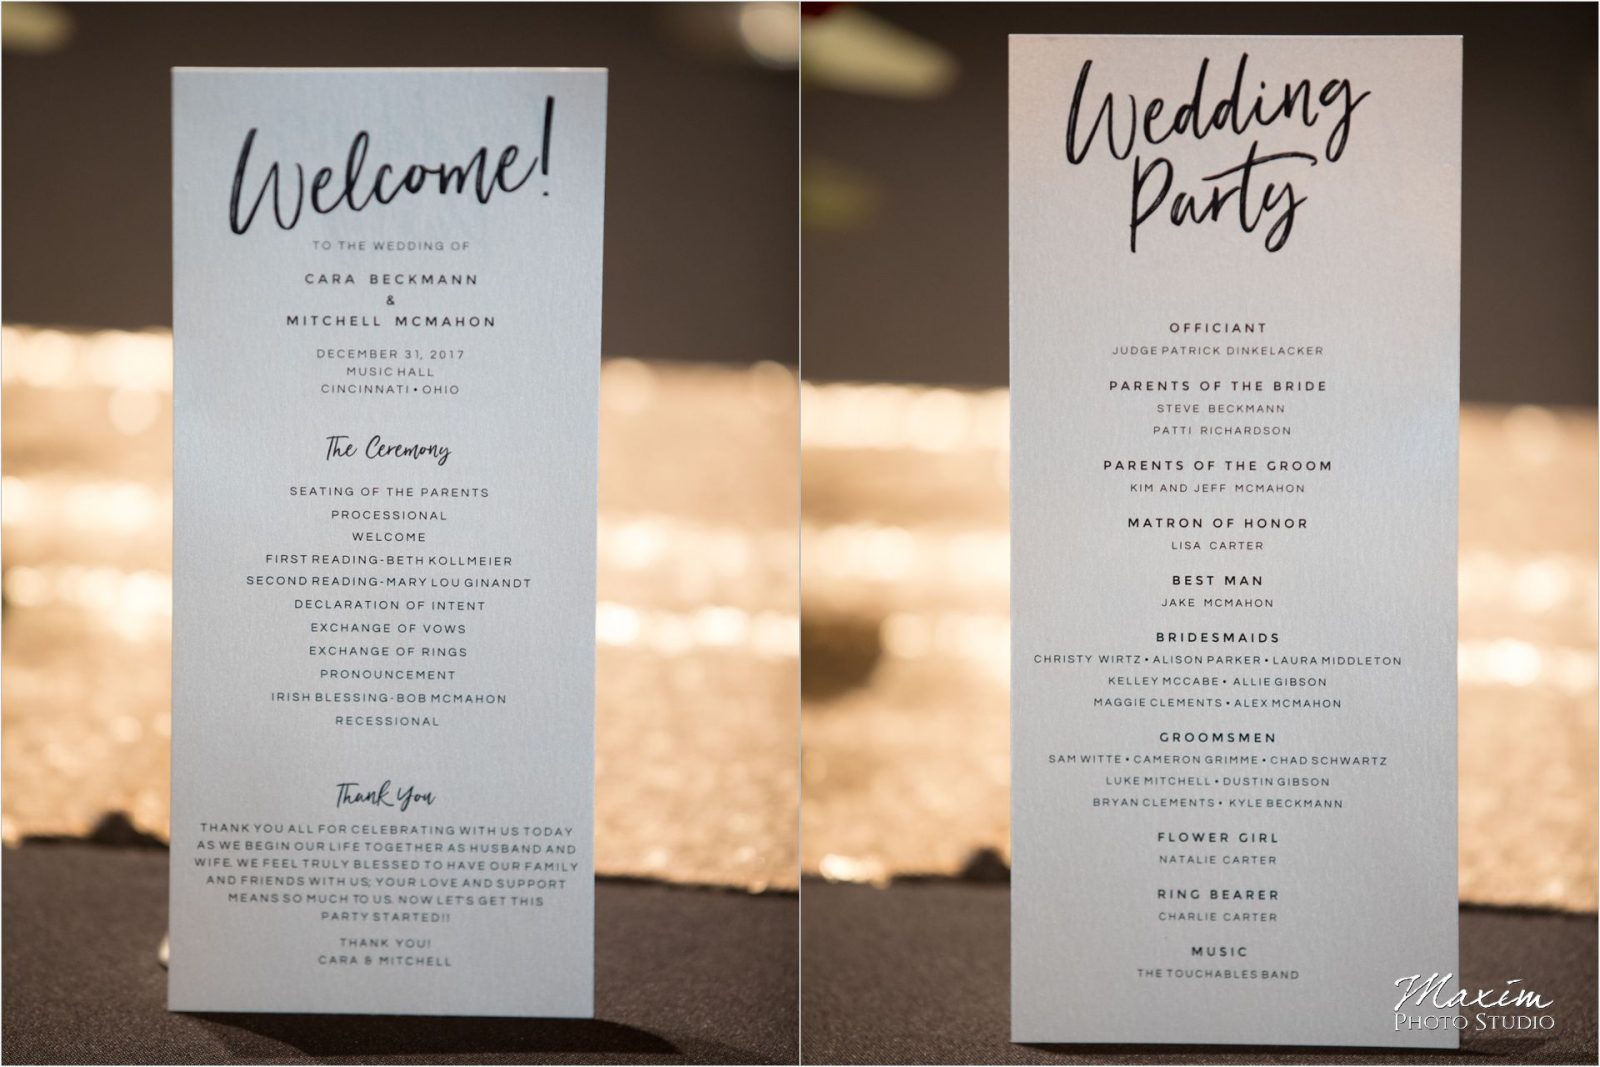 Welcome!
TO THE WEDDING OF
CARA BECKMANN
&
MITCHELL MCMAHON
DECEMBER 31, 2017
MUSIC HALL
CINCINNATI • OHIO
The Ceremony
SEATING OF THE PARENTS
PROCESSIONAL
WELCOME
FIRST READING-BETH KOLLMEIER
SECOND READING-MARY LOU GINANDT
DECLARATION OF INTENT
EXCHANGE OF VOWS
EXCHANGE OF RINGS
PRONOUNCEMENT
IRISH BLESSING-BOB MCMAHON
RECESSIONAL
Thank You
THANK YOU ALL FOR CELEBRATING WITH US TODAY
AS WE BEGIN OUR LIFE TOGETHER AS HUSBAND AND
WIFE. WE FEEL TRULY BLESSED TO HAVE OUR FAMILY
AND FRIENDS WITH US; YOUR LOVE AND SUPPORT
MEANS SO MUCH TO US. NOW LET'S GET THIS
PARTY STARTED!!
THANK YOU!
CARA & MITCHELL
Wedding
Party
OFFICIANT
JUDGE PATRICK DINKELACKER
PARENTS OF THE BRIDE
STEVE BECKMANN
PATTI RICHARDSON
PARENTS OF THE GROOM
KIM AND JEFF MCMAHON
MATRON OF HONOR
LISA CARTER
BEST MAN
JAKE MCMAHON
BRIDESMAIDS
CHRISTY WIRTZ • ALISON PARKER • LAURA MIDDLETON
KELLEY MCCABE • ALLIE GIBSON
MAGGIE CLEMENTS • ALEX MCMAHON
GROOMSMEN
SAM WITTE • CAMERON GRIMME • CHAD SCHWARTZ
LUKE MITCHELL • DUSTIN GIBSON
BRYAN CLEMENTS • KYLE BECKMANN
FLOWER GIRL
NATALIE CARTER
RING BEARER
CHARLIE CARTER
MUSIC
THE TOUCHABLES BAND
Maxim
PHOTO STUDIO